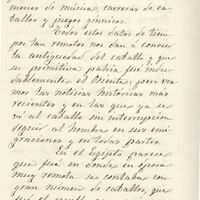 menor de música, carreras de ca-
ballos y juegos gimnicos.
Todos estos datos de tiem-
pos tan remotos nos dan á conocer
la antigüedad del caballo y que
su primitiva patria fué indu-
dablemente el Oriente; pero vea-
mos las noticias historicas mas
recientes y en las que ya se
vé al caballo sin interrupción
seguir al hombre en sus emi-
graciones y en todas partes.
En el Egipto parece
que fué en donde en época
muy remota se contaba con
gran número de caballos, que